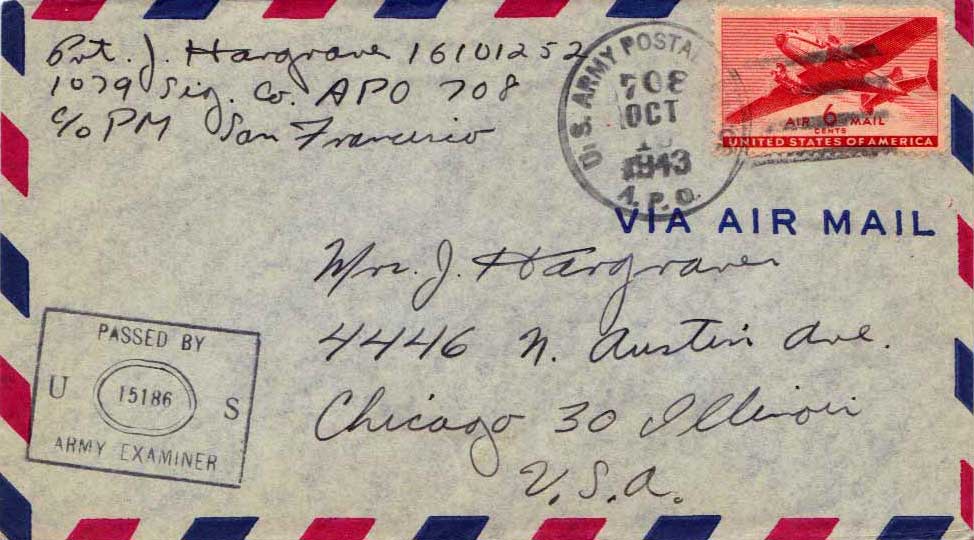 Pvt. J. Hargraves 16101252
1079 Sig. Co. APO 708
c/o PM San Francisco
U.S. ARMY POSTAL
708
OCT
1943
A.P.O.
AIR 6 MAIL
CENTS
UNITED STATES OF AMERICA
VIA AIR MAIL
Mrs. J. Hargraves
4446 N. Austin Ave.
Chicago 30 Illinois
U.S.A.
PASSED BY
U 15186 S
ARMY EXAMINER